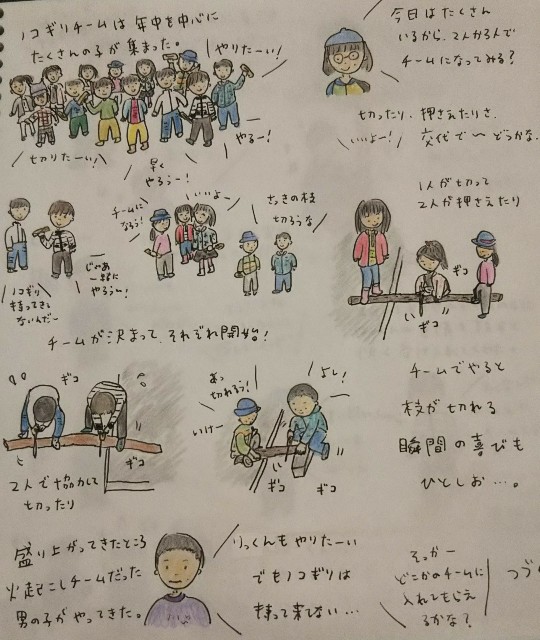 ノコギリチームは年中を中心に
たくさんの子が集まった。
やりたーい!
切りたーい!
早く
やろうー!
やるー!
今日はたくさん
いるから、2人か3人で
チームになってみる?
切ったり、押さえたりさ、
交代で〜どうかな。
いいよー!
ノコギリ
持ってきて
ないんだー
じゃあ
一緒に
やろうよ!
チームに
なろう!
いいよー
さっきの枝
切ろうな
1人が切って
2人が押さえたり
ギコ
ギコ
チームが決まって、それぞれ開始!
ギコ
ギコ
2人で協力して
切ったり
あっ
切れそう!
いけー
よし!
ギコ
ギコ
チームでやると
枝が切れる
瞬間の喜びも
ひとしお…。
盛り上がってきたところ
火起こしチームだった
男の子がやってきた。
りっくんもやりたーい
でもノコギリは
持って来てない…
そっかー
どこかのチームに
入れてもらえ
るかな?
つづ